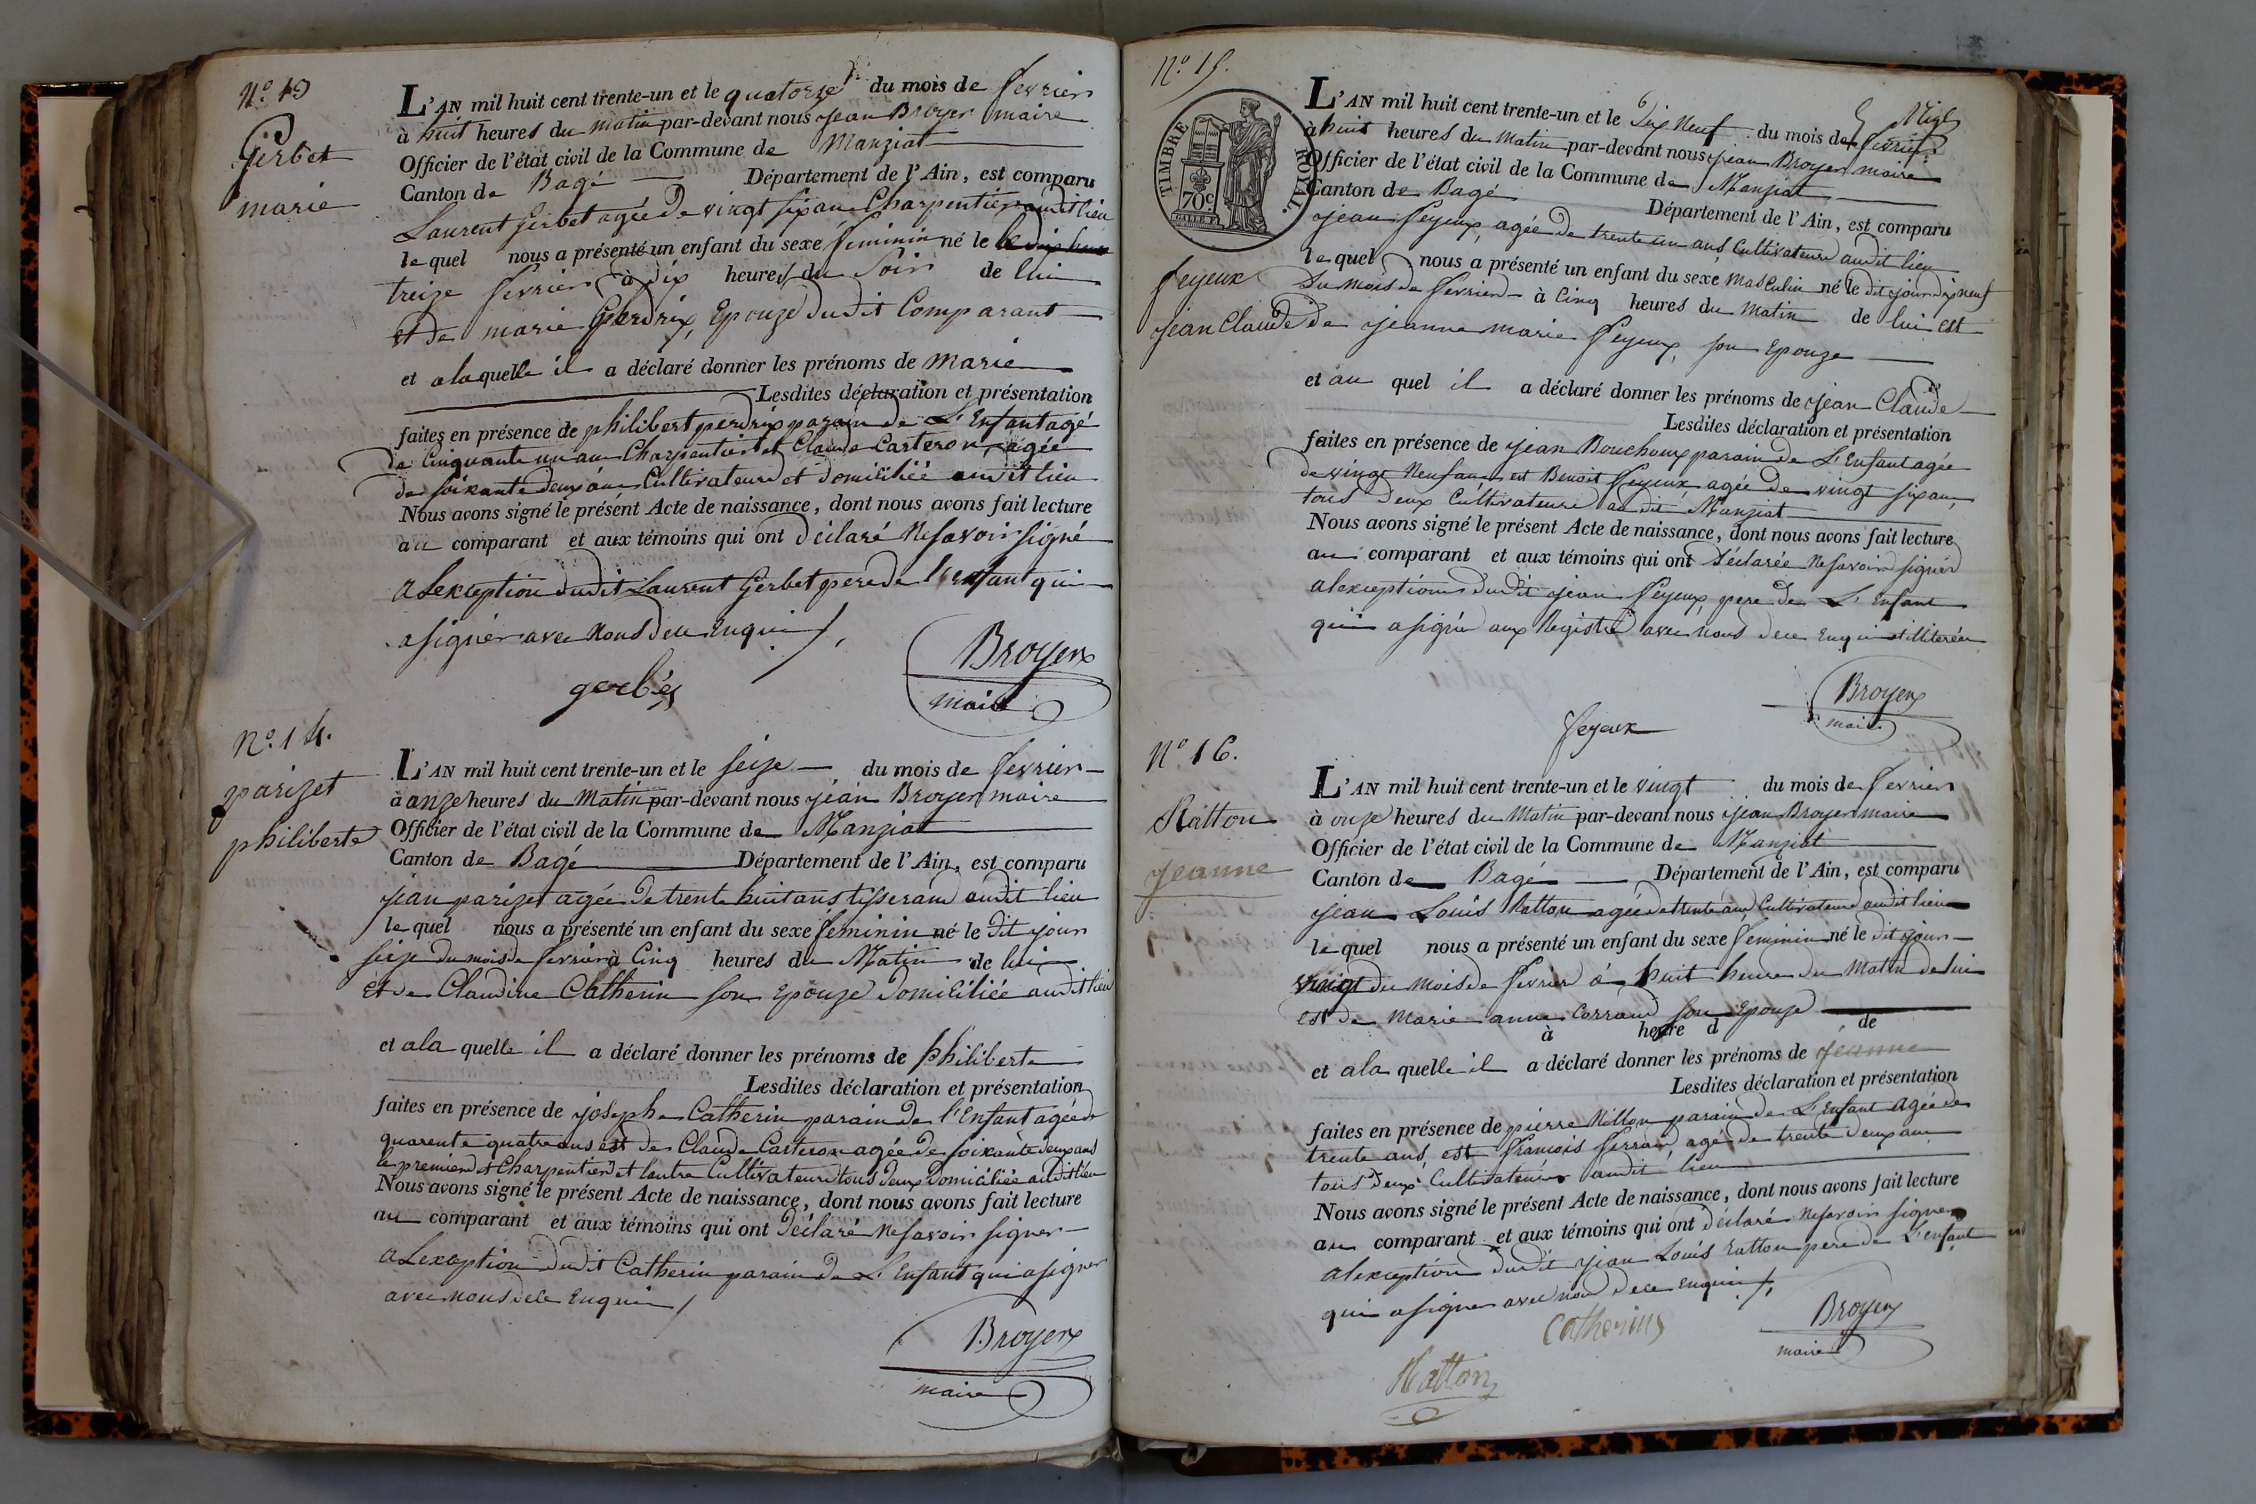 N.º 13
Gerbet
marie
L'AN mil huit cent trente-un et le quatorze du mois de fevrier
à huit heures du matin par-devant nous jean Broyer maire
Officier de l'état civil de la Commune de Manziat
Canton de Bagé Département de l'Ain, est comparu
Laurent Gerbet agée de vingt six ans Charpentier audit lieu
le quel nous a présenté un enfant du sexe feminin né le
treize fevrier à dix heures du Soir de lui
et de marie Perdrix Epouze dudit Comparant
et a la quelle il a déclaré donner les prénoms de marie
Lesdites déclaration et présentation
faites en présence de philibert perdrix parain de L'Enfant agé
de Cinquante un ans Charpentier et Claude Carteron agée
de soixante deux ans Cultivateur et domiciliée audit lieu
Nous avons signé le présent Acte de naissance, dont nous avons fait lecture
au comparant et aux témoins qui ont déclaré ne savoir signé
a Lexception dudit Laurent Gerbet pere de l'enfant qui
a signér avec nous de ce Enquis
gerbet
Broyer
maire
N.º 14.
parizet
philiberte
L'AN mil huit cent trente-un et le seize du mois de fevrier
à onze heures du Matin par-devant nous jean Broyer maire
Officier de l'état civil de la Commune de Manziat
Canton de Bagé Département de l'Ain, est comparu
jean parizet agée de trente huit ans tisserand audit lieu
le quel nous a présenté un enfant du sexe feminin né le dit jour
seize du mois de fevrier à Cinq heures du Matin de lui
et de Claudine Catherin son Epouze domiciliée audit lieu
et a la quelle il a déclaré donner les prénoms de philiberte
Lesdites déclaration et présentation
faites en présence de josephe Catherin parain de l'Enfant agée de
quarente quatre ans est de Claude Carteron agée de soixante deux ans
le premier et Charpentier et lautre Cultivateur tous deux domiciliée audit lieu
Nous avons signé le présent Acte de naissance, dont nous avons fait lecture
au comparant et aux témoins qui ont déclaré ne savoir signer
a Lexception dudit Catherin parain de L'Enfant qui a signer
avec nous de ce Enquis
Broyer
maire
N.º 15.
TIMBRE ROYAL.
70.c
feyeux
jean Claude
L'AN mil huit cent trente-un et le Dix Neuf du mois de fevrier
à huit heures du Matin par-devant nous jean Broyer maire
Officier de l'état civil de la Commune de Manziat
Canton de Bagé Département de l'Ain, est comparu
jean feyeux agée de trente un ans Cultivateur audit lieu
le quel nous a présenté un enfant du sexe masculin né le dit jour dix neuf
du mois de fevrier à Cinq heures du Matin de lui est
de jeanne marie feyeux son Epouze
et au quel il a déclaré donner les prénoms de jean Claude
Lesdites déclaration et présentation
faites en présence de jean Bouchoux parain de L'Enfant agée
de vingt neuf ans est Benoit feyeux agée de vingt six ans
tous deux Cultivateurs au dit Manziat
Nous avons signé le présent Acte de naissance, dont nous avons fait lecture
au comparant et aux témoins qui ont déclarée ne savoir signér
a lexception dudit jean feyeux pere de L'Enfant
qui a signé aux Registre avec nous de ce Enquis
feyeux
Broyer
maire
N.º 16.
Ratton
jeanne
L'AN mil huit cent trente-un et le vingt du mois de fevrier
à onze heures du Matin par-devant nous jean Broyer maire
Officier de l'état civil de la Commune de Manziat
Canton de Bagé Département de l'Ain, est comparu
jean Louis Ratton agée de trente ans Cultivateur audit lieu
le quel nous a présenté un enfant du sexe feminin né le dit jour
vingt du mois de fevrier à huit heure du Matin de lui
est de Marie anne Corrand son Epouze
à heure d de
et a la quelle il a déclaré donner les prénoms de jeanne
Lesdites déclaration et présentation
faites en présence de pierre parain de L'Enfant agée de
trente ans est francois ferrand agé de trente deux ans
tous deux Cultivateurs audit lieu
Nous avons signé le présent Acte de naissance, dont nous avons fait lecture
au comparant et aux témoins qui ont déclaré ne savoir signer
a lexception dudit jean Louis ratton pere de L'enfant
qui a signer avec nous de ce Enquis
Catherin
Broyer
maire
Ratton